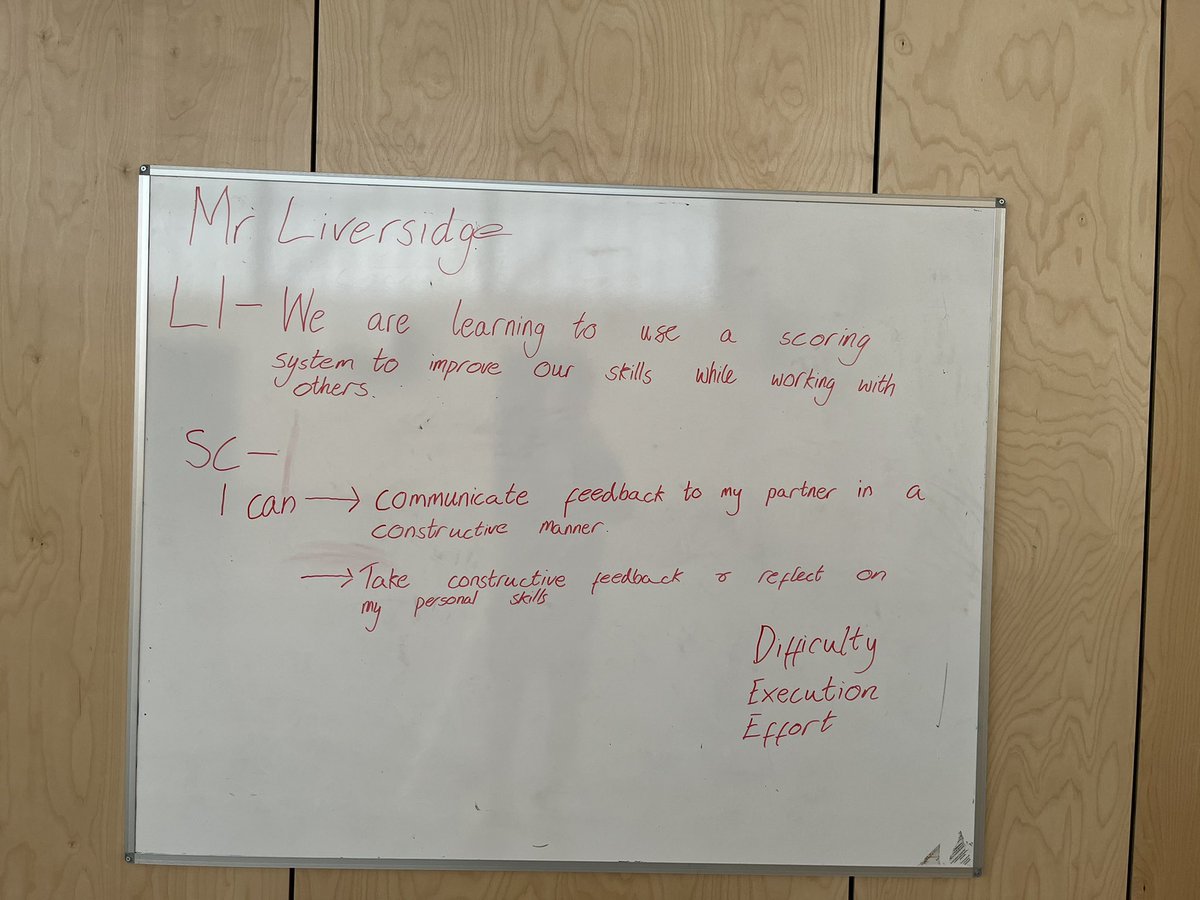 Mr Liversidge
LI - We are learning to use a scoring
system to improve our skills while working with
others.
SC -
I can → communicate feedback to my partner in a
constructive manner.
→ Take constructive feedback & reflect on
my personal skills
Difficulty
Execution
Effort